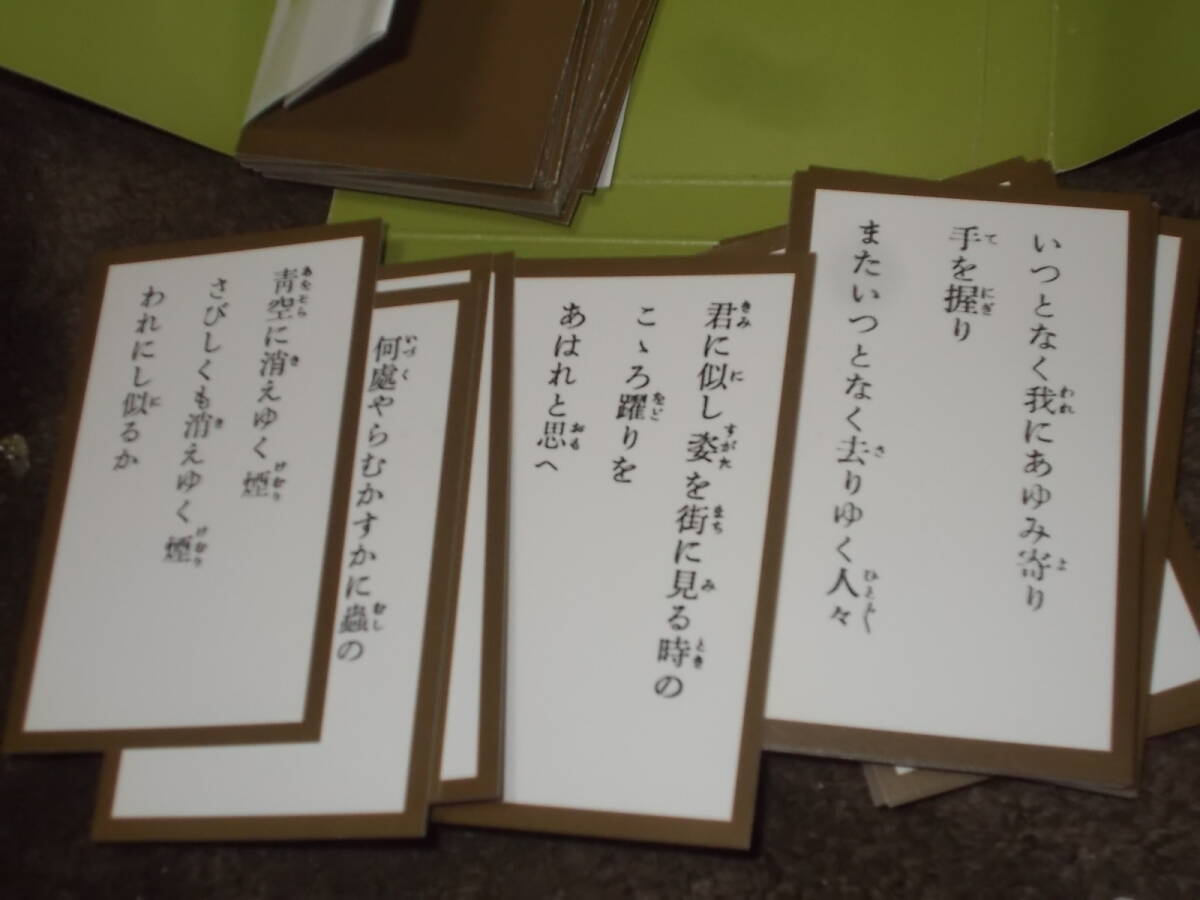 いつとなく我にあゆみ寄り
手を握り
またいつとなく去りゆく人々
君に似し姿を街に見る時の
こゝろ躍りを
あはれと思へ
何處やらむかすかに蟲の
青空に消えゆく煙
さびしくも消えゆく煙
われにし似るか